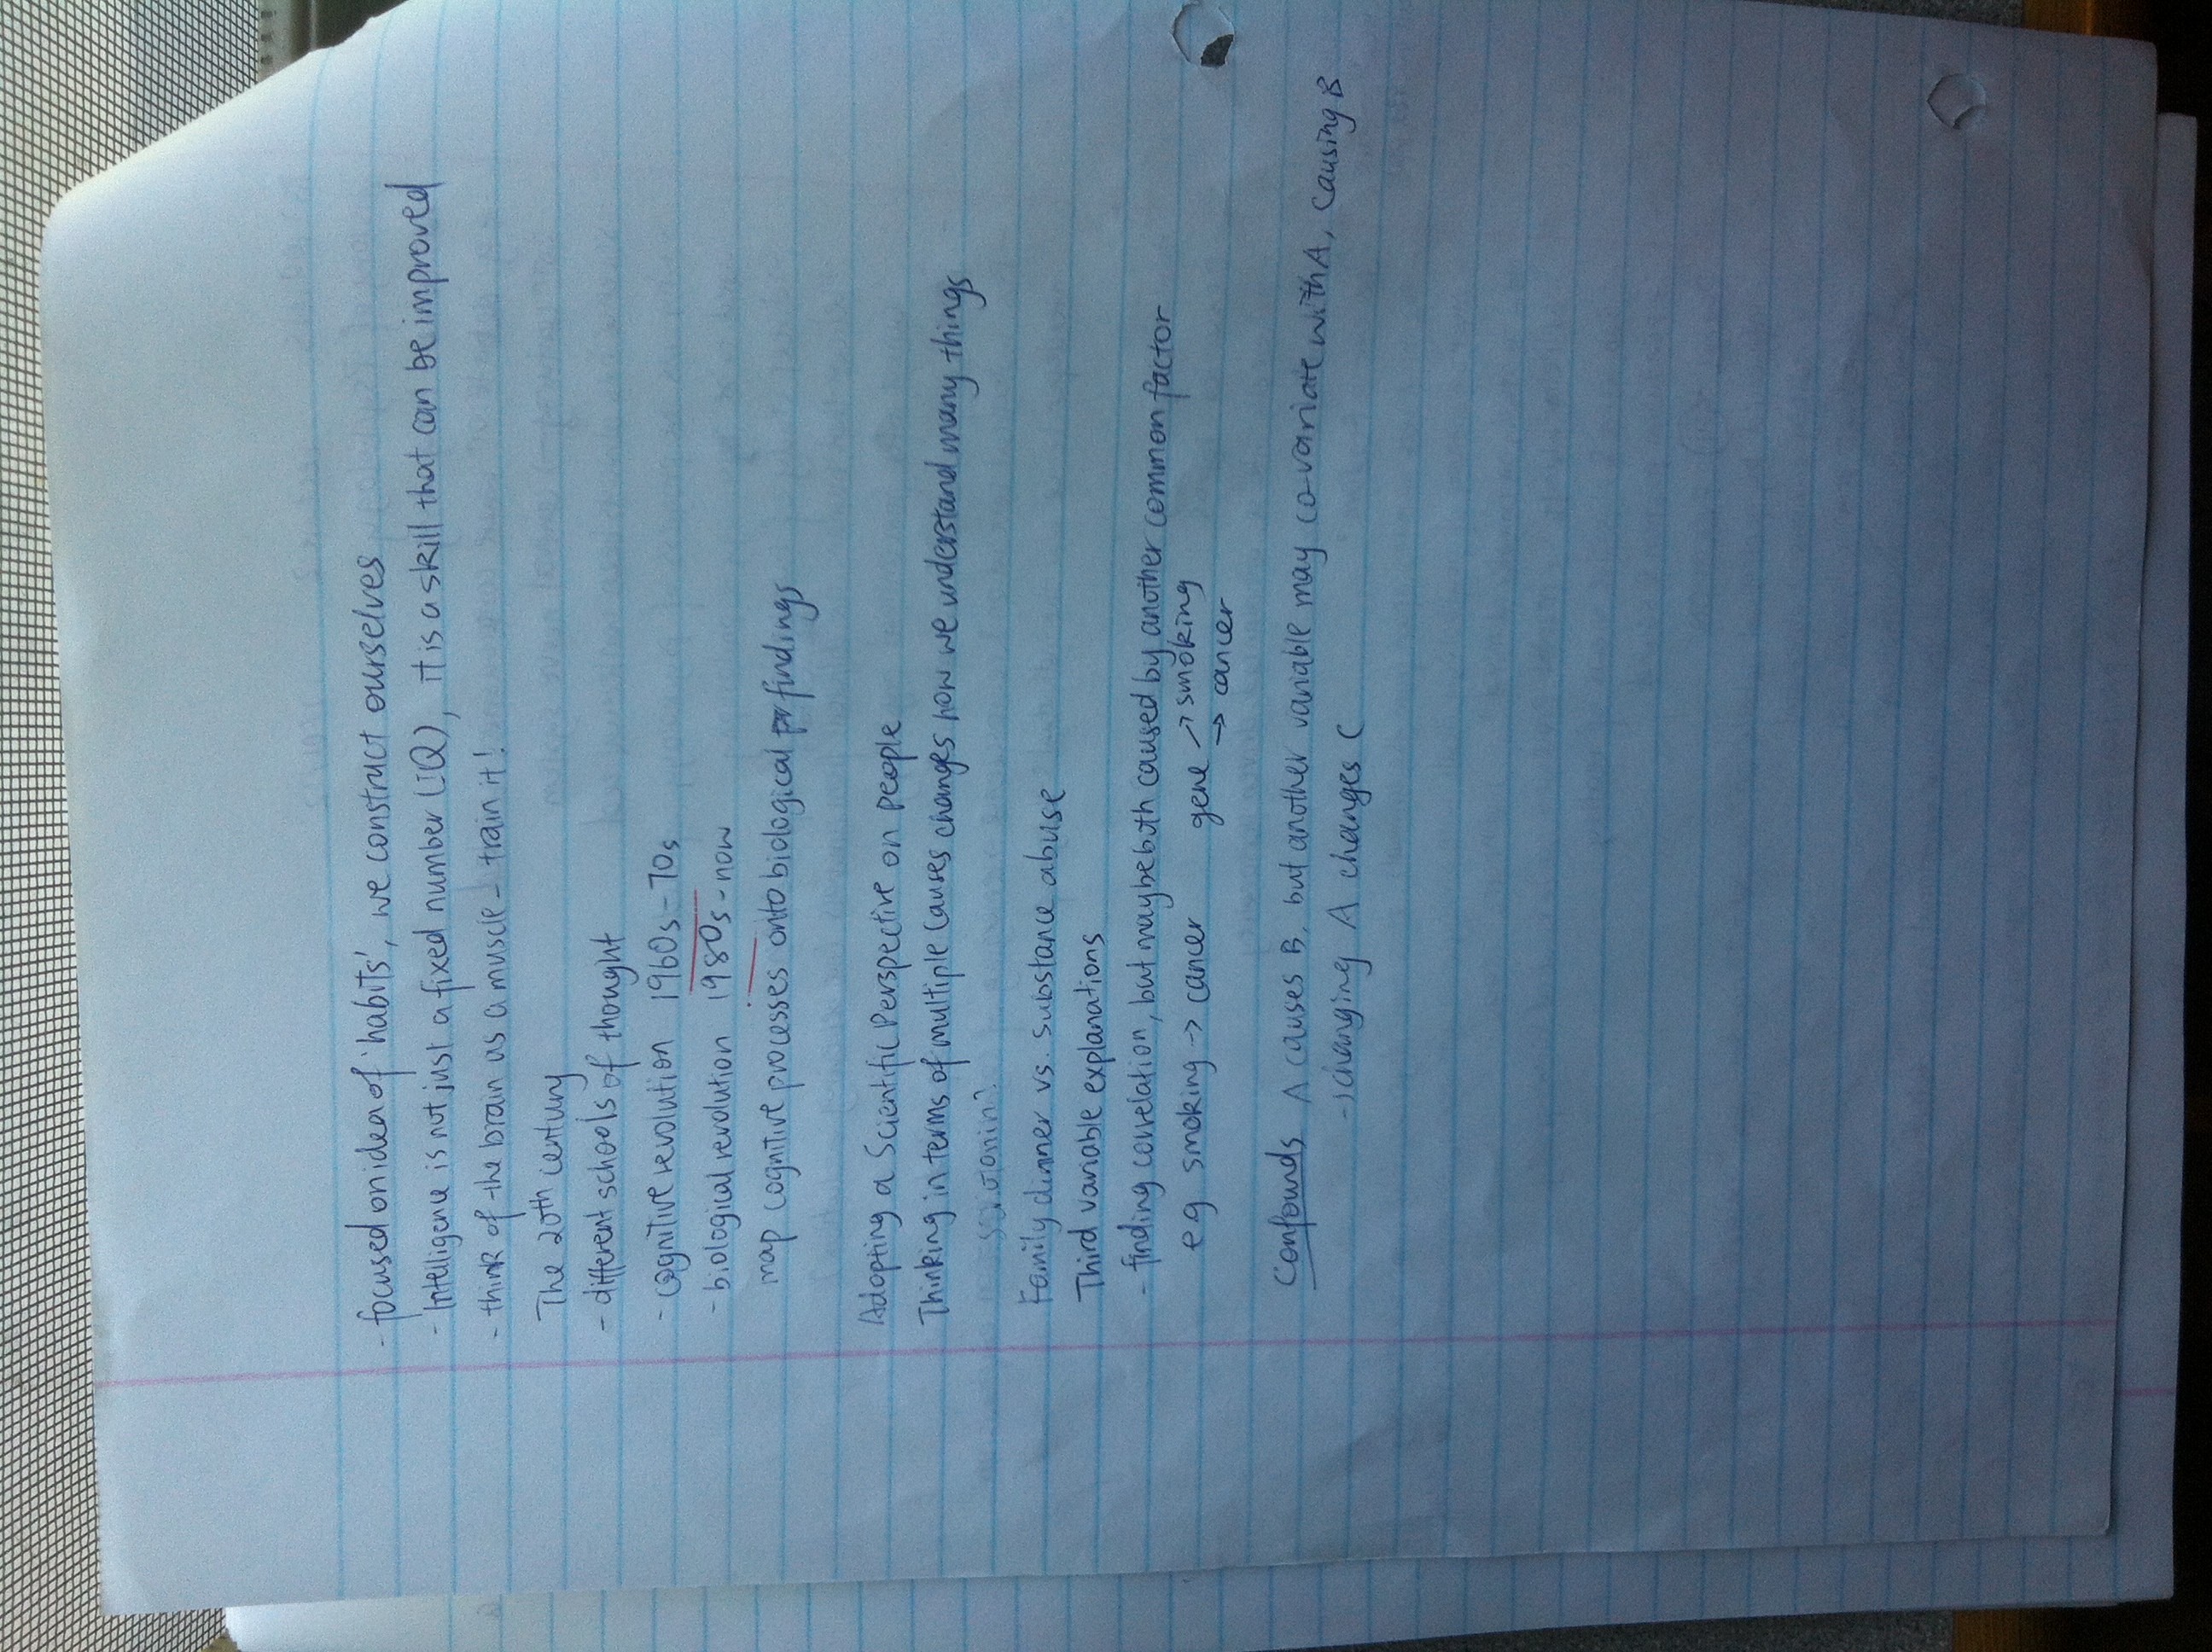 - focused on idea of 'habits', we construct ourselves
- Intelligence is not just a fixed number (IQ), it is a skill that can be improved
- think of the brain as a muscle - train it!
The 20th century
- different schools of thought
- cognitive revolution 1960s-70s
- biological revolution 1980s - now
map cognitive processes onto biological findings
Adopting a Scientific Perspective on people
Thinking in terms of multiple causes changes how we understand many things
Family dinner vs. substance abuse
Third variable explanations
- finding correlation, but maybe both caused by another common factor
e.g smoking → cancer gene ↗ smoking
→ cancer
Confounds A causes B, but another variable may co-variate with A, causing B
-> changing A changes C